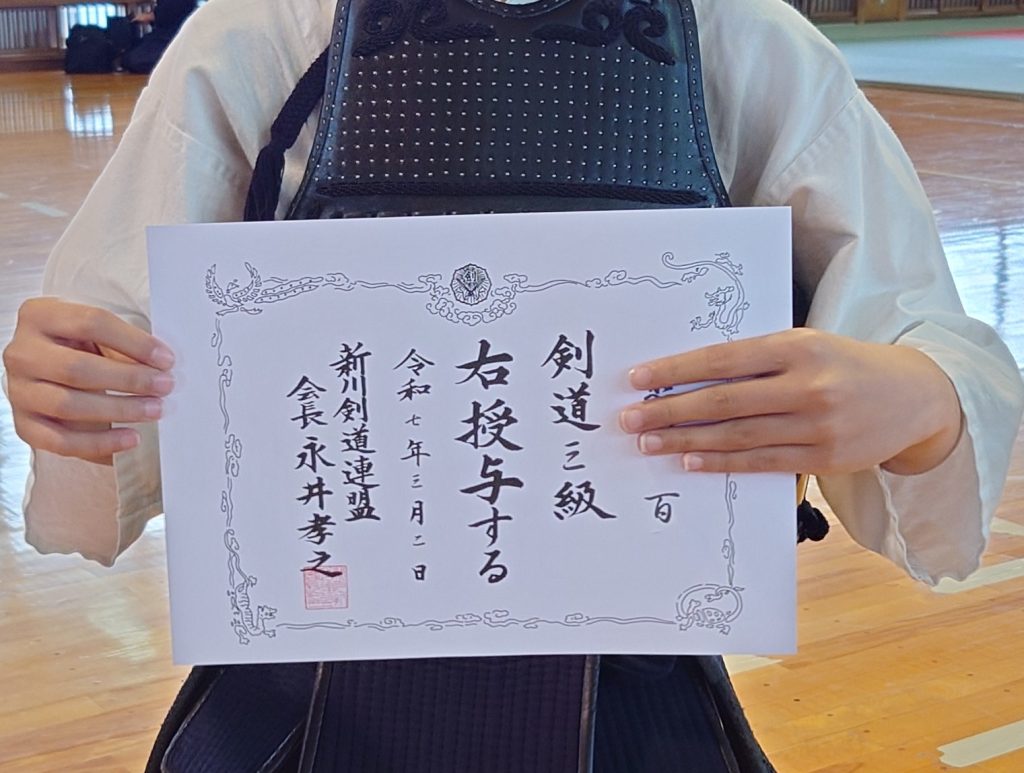 百
剣道三級
右授与する
令和七年三月二日
新川剣道連盟
会長永井孝之